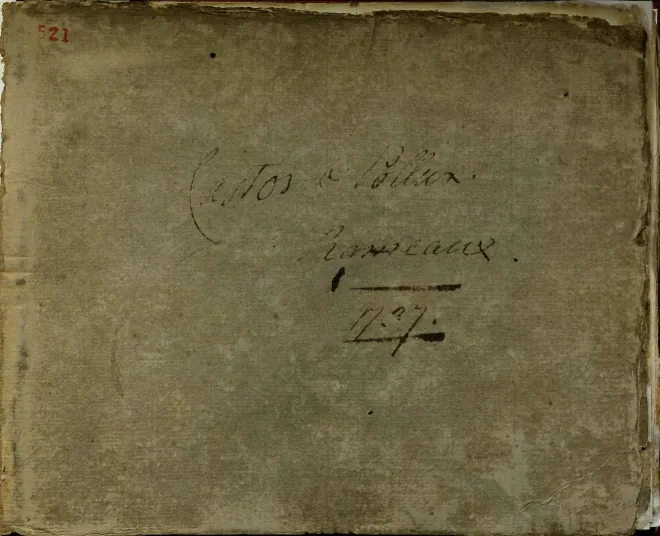 521
Castor & Pollux.
Rameaux.
1737.